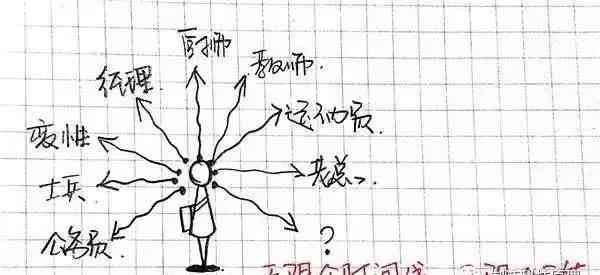 厨师
教师.
经理.
运动员.
变性
老总..
士兵.
?
公务员.